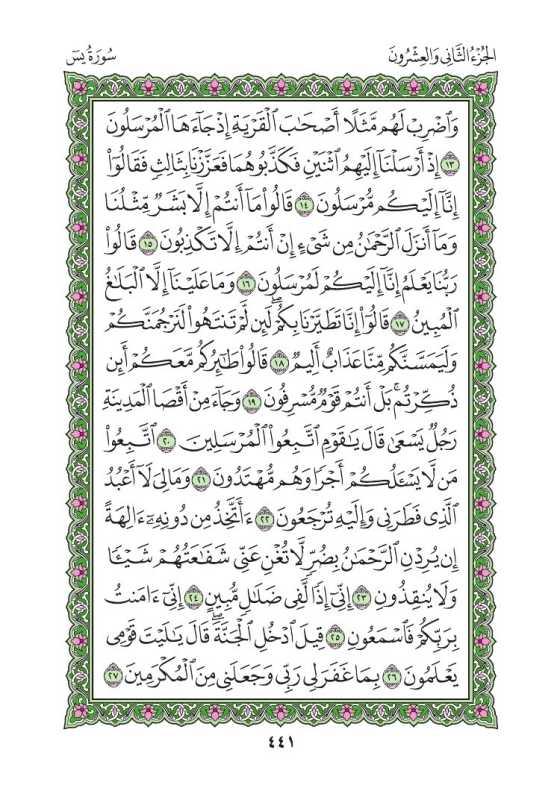 الجُزْءُ الثَّانِي وَالعِشْرُونَ
سُورَةُ يسٓ
وَٱضْرِبْ لَهُم مَّثَلًا أَصْحَٰبَ ٱلْقَرْيَةِ إِذْ جَآءَهَا ٱلْمُرْسَلُونَ
١٣ إِذْ أَرْسَلْنَآ إِلَيْهِمُ ٱثْنَيْنِ فَكَذَّبُوهُمَا فَعَزَّزْنَا بِثَالِثٍ فَقَالُوٓا۟
إِنَّآ إِلَيْكُم مُّرْسَلُونَ ١٤ قَالُوا۟ مَآ أَنتُمْ إِلَّا بَشَرٌ مِّثْلُنَا
وَمَآ أَنزَلَ ٱلرَّحْمَٰنُ مِن شَىْءٍ إِنْ أَنتُمْ إِلَّا تَكْذِبُونَ ١٥ قَالُوا۟
رَبُّنَا يَعْلَمُ إِنَّآ إِلَيْكُمْ لَمُرْسَلُونَ ١٦ وَمَا عَلَيْنَآ إِلَّا ٱلْبَلَٰغُ
ٱلْمُبِينُ ١٧ قَالُوٓا۟ إِنَّا تَطَيَّرْنَا بِكُمْ ۖ لَئِن لَّمْ تَنتَهُوا۟ لَنَرْجُمَنَّكُمْ
وَلَيَمَسَّنَّكُم مِّنَّا عَذَابٌ أَلِيمٌ ١٨ قَالُوا۟ طَٰٓئِرُكُم مَّعَكُمْ أَئِن
ذُكِّرْتُم ۚ بَلْ أَنتُمْ قَوْمٌ مُّسْرِفُونَ ١٩ وَجَآءَ مِنْ أَقْصَا ٱلْمَدِينَةِ
رَجُلٌ يَسْعَىٰ قَالَ يَٰقَوْمِ ٱتَّبِعُوا۟ ٱلْمُرْسَلِينَ ٢٠ ٱتَّبِعُوا۟
مَن لَّا يَسْـَٔلُكُمْ أَجْرًا وَهُم مُّهْتَدُونَ ٢١ وَمَا لِىَ لَآ أَعْبُدُ
ٱلَّذِى فَطَرَنِى وَإِلَيْهِ تُرْجَعُونَ ٢٢ ءَأَتَّخِذُ مِن دُونِهِۦٓ ءَالِهَةً
إِن يُرِدْنِ ٱلرَّحْمَٰنُ بِضُرٍّ لَّا تُغْنِ عَنِّى شَفَٰعَتُهُمْ شَيْـًٔا
وَلَا يُنقِذُونِ ٢٣ إِنِّىٓ إِذًا لَّفِى ضَلَٰلٍ مُّبِينٍ ٢٤ إِنِّىٓ ءَامَنتُ
بِرَبِّكُمْ فَٱسْمَعُونِ ٢٥ قِيلَ ٱدْخُلِ ٱلْجَنَّةَ ۖ قَالَ يَٰلَيْتَ قَوْمِى
يَعْلَمُونَ ٢٦ بِمَا غَفَرَ لِى رَبِّى وَجَعَلَنِى مِنَ ٱلْمُكْرَمِينَ ٢٧
٤٤١